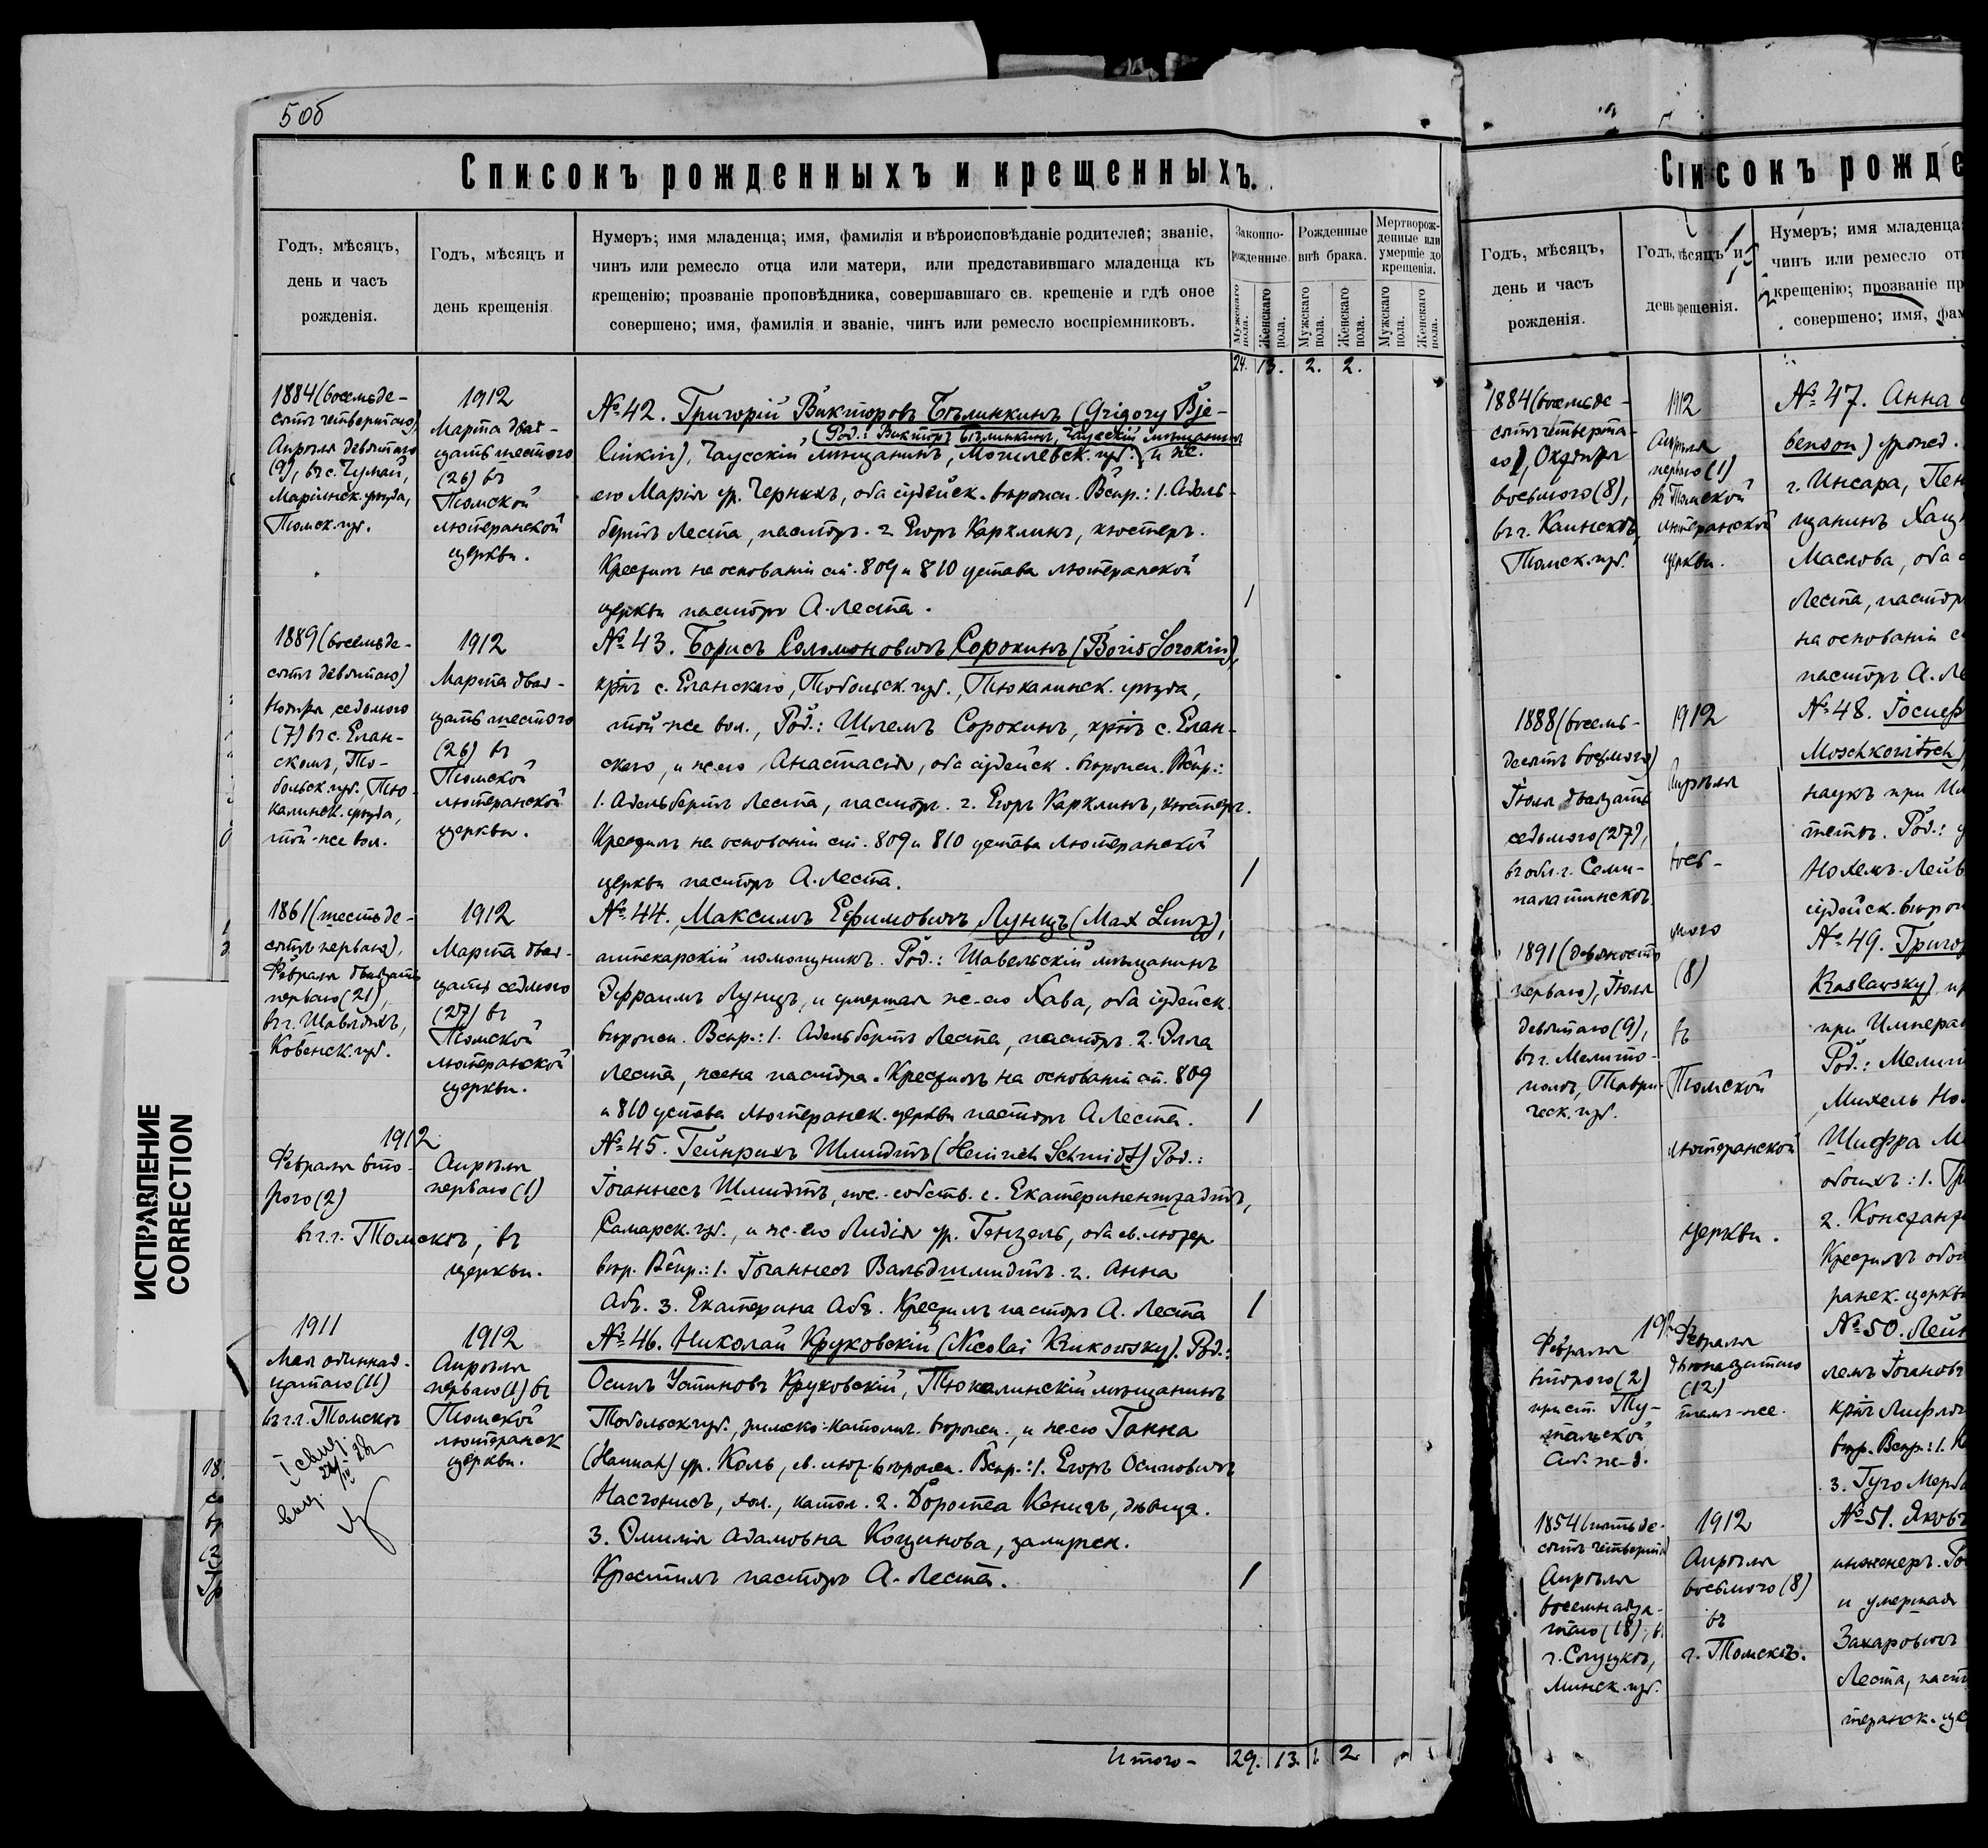 50б
Списокъ рожденныхъ и крещенныхъ.
Годъ, мѣсяцъ,
день и часъ
рожденія.
Годъ, мѣсяцъ и
день крещенія
Нумеръ; имя младенца; имя, фамилія и вѣроисповѣданіе родителей; званіе,
чинъ или ремесло отца или матери, или представившаго младенца къ
крещенію; прозваніе проповѣдника, совершавшаго св. крещеніе и гдѣ оное
совершено; имя, фамилія и званіе, чинъ или ремесло воспріемниковъ.
Законно-
рожденные.
Рожденные
внѣ брака.
Мертворож-
денные или
умершіе до
крещенія.
Мужскаго пола.
Женскаго пола.
Мужскаго пола.
Женскаго пола.
Мужскаго пола.
Женскаго пола.
24. 13. 2. 2.
1884 (восемьде-
сятъ четвертаго)
Апрѣля девятаго
(9), въ с. Чумаи,
Маріинск. уѣзда,
Томск. губ.
1912
Марта двад-
цать шестого
(26) въ
Томской
лютеранской
церкви.
№ 42. Григорій Викторовъ Бѣлинкинъ (Grigory Bje-
(Род.: Викторъ Бѣлинкинъ, Чаусскій мѣщанинъ
linkin), Чаусскій мѣщанинъ, Могилевск. губ. и ж.
его Марія ур. Черныхъ, оба іудейск. вѣроисп. Вспр.: 1. Адель-
бертъ Леста, пасторъ. 2 Егоръ Карклинъ, кюстеръ.
Крестилъ на основаніи ст. 809 и 810 устава лютеранской
церкви пасторъ А. Леста.
1
1889 (восемьде-
сятъ девятаго)
Ноября седьмого
(7) въ с. Елан-
скомъ, То-
больск. губ. Тю-
калинск. уѣзда,
той-же вол.
1912
Марта двад-
цать шестого
(26) въ
Томской
лютеранской
церкви.
№ 43. Борисъ Соломоновичъ Сорокинъ (Boris Sorokin),
крѣтъ с. Еланскаго, Тобольск. губ., Тюкалинск. уѣзда,
той-же вол., Род.: Шлемъ Сорокинъ, крѣтъ с. Елан-
скаго, и ж его Анастасія, оба іудейск. вѣроисп. Вспр.:
1. Адельбертъ Леста, пасторъ. 2. Егоръ Карклинъ, кюстеръ.
Крестилъ на основаніи ст. 809 и 810 устава лютеранской
церкви пасторъ А. Леста.
1
1861 (шестьде-
сятъ перваго),
Февраля двадцать
перваго (21),
въ г. Шавляхъ,
Ковенск. губ.
1912
Марта двад-
цать седьмого
(27) въ
Томской
лютеранской
церкви.
№ 44. Максимъ Ефимовичъ Лунцъ (Max Lunz),
аптекарскій помощникъ. Род.: Шавельскій мѣщанинъ
Эфраимъ Лунцъ, и умершая ж-его Хава, оба іудейск.
вѣроисп. Вспр.: 1. Адельбертъ Леста, пасторъ. 2. Элла
Леста, жена пастора. Крестилъ на основаніи ст. 809
и 810 устава лютеранск. церкви пасторъ А Леста.
1
1912
Февраля вто-
рого (2)
Апрѣля
перваго (1)
въ г. Томскѣ, въ
церкви.
№ 45. Гейнрихъ Шмидтъ (Heinrich Schmidt) Род.:
Іоганнесъ Шмидтъ, пос.-собств. с. Екатериненштадтъ,
Самарск. губ., и ж-его Лидія ур. Гензель, оба ев. лютер.
вѣр. Вспр.: 1. Іоганнесъ Вальдшмидтъ. 2. Анна
Абъ. 3. Екатерина Абъ. Крестилъ пасторъ А. Леста
1
1911
Мая одиннад-
цатаго (11)
въ г. Томскѣ
1912
Апрѣля
перваго (1) въ
Томской
лютеранск
церкви.
№ 46. Николай Круковскій (Nicolai Krukowsky). Род.:
Осипъ Устиновъ Круковскій, Тюкалинскій мѣщанинъ
Тобольск губ., римско-католич. вѣроисп., и ж-его Ганна
(Hannah) ур. Коль, ев. лют-вѣроисп. Вспр.: 1. Егоръ Осиповичъ
, хол., катол. 2. Доротеа Кеницъ, дѣвица.
3. Эмилія Адамовна , замужн.
Крестилъ пасторъ А. Леста.
1
Итого - 29. 13. 2
ИСПРАВЛЕНИЕ
CORRECTION
Списокъ рожде
Годъ, мѣсяцъ,
день и часъ
рожденія.
Годъ, мѣсяцъ и
день крещенія.
Нумеръ; имя младенца
чинъ или ремесло от
крещенію; прозваніе пр
совершено; имя, фам
1884 (восемьде-
сятъ четверта-
го), Октября
восьмого (8),
въ г. Каинскѣ
Томск. губ.
1912
Апрѣля
перваго (1)
въ Томской
лютеранской
церкви.
№ 47. Анна
benson) урожд.
г. Инсара, Пен
щанинъ
Маслова, оба
Леста, пасторъ
на основаніи с
пасторъ А. Ле
1888 (восемь-
десятъ восьмого)
Іюля двадцать
седьмого (27),
въ обл. г. Семи-
палатинскѣ
1912
Апрѣля
вось-
мого
(8)
въ
Томской
лютеранской
церкви.
№ 48. Іосиф
Moschkowitsch)
наукъ при Им
тетѣ. Род.:
Нохемъ-Лейв
іудейск. вѣрои
1891 (девяносто
перваго), Іюля
девятаго (9),
въ г. Мелито-
полѣ, Таври-
ческ. губ.
№ 49. Григор
Kraslawsky)
при Импера
Род.: Мелит
Михель Но
Шифра М
обоихъ: 1. Гр
2. Констант
Крестилъ обои
ранск. церкв
Февраля
второго (2)
при ст. Ту-
тальской
Сиб. ж-д.
Февраля
двѣнадцатаго
(12)
тамъ-же.
№ 50. Лей
лемъ Іогановъ
крѣтъ Лифлян
вѣр. Вспр.: 1.
3. Гуго Мерб
1854 (пятьде-
сятъ четвертаго)
Апрѣля
восемнадца-
таго (18), въ
г. Слуцкѣ,
Минск. губ.
1912
Апрѣля
восьмого (8)
въ
г. Томскѣ.
№ 51. Яковъ
инженеръ. Ро
и умершая
Захаровичъ
Леста, паст
теранск. це